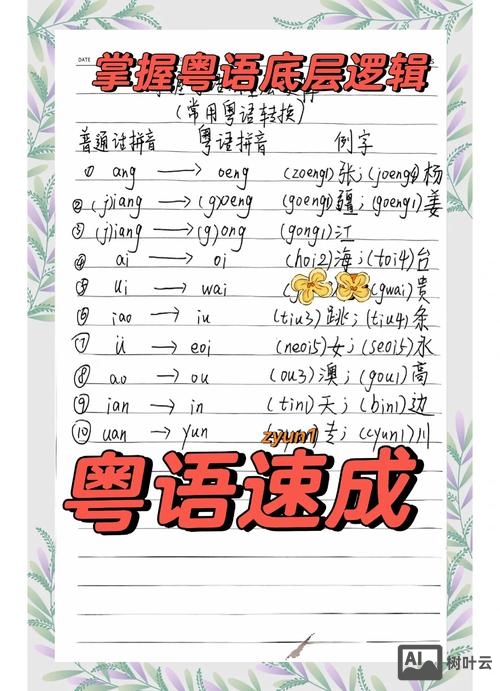 DATE
掌握粤语底层逻辑
(常用粤语转换)
普通话拼音 粤语拼音 例字
① ang → oeng (zoeng1)张;(joeng4)杨
② (j)iang → (g)oeng (goeng1)疆;(goeng1)姜
③ (j)iang → (g)ong (gong1)江
④ ai → oi (hoi2)海;(toi4)台
⑤ ui → wai (gwai)貴
⑥ iao → iu (tiu3)跳;(tiu4)条
⑦ ü → eoi (neoi5)女;(seoi5)水
⑧ ao → ou (ou3)澳;(gou1)高
⑨ ian → in (tin1)天;(bin1)边
⑩ uan → yun zyun1 专;(cyun1)川
粤语速成
AI 树叶云